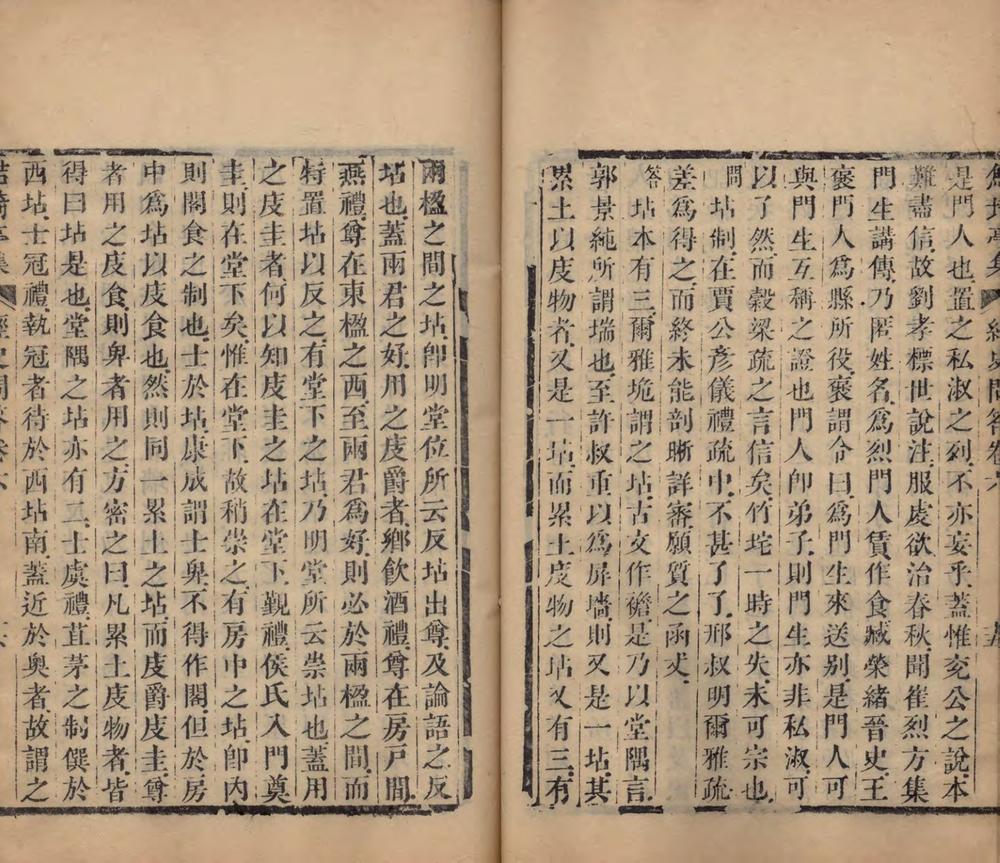 鮚埼亭集 經史問答卷六 五
是門人也置之私淑之列不亦妄乎蓋惟兖公之說本
難盡信故劉孝標世說注服虔欲治春秋聞崔烈方集
門生講傳乃匿姓名為烈門人賃作食臧榮緒晉史王
褒門人為縣所役褒謂令曰為門生來送别是門人可
與門生互稱之證也門人卽弟子則門生亦非私淑可
以了然而榖梁疏之言信矣竹垞一時之失未可宗也
問坫制在賈公彦儀禮疏中不甚了了邢叔明爾雅疏
差為得之而終未能剖晰詳審願質之函丈
答坫本有三爾雅垝謂之坫古文作襜是乃以堂隅言
郭景純所謂㙐也至許叔重以為屏墻則又是一坫其
累土以庋物者又是一坫而累土庋物之坫又有三有
兩楹之間之坫卽明堂位所云反坫出尊及論語之反
坫也蓋兩君之好用之庋爵者鄉飲酒禮尊在房戸間
燕禮尊在東楹之西至兩君為好則必於兩楹之間而
特置坫以反之有堂下之坫乃明堂所云崇坫也蓋用
之庋圭者何以知庋圭之坫在堂下覲禮侯氏入門奠
圭則在堂下矣惟在堂下故稍崇之有房中之坫卽内
則閣食之制也士於坫康成謂士卑不得作閣但於房
中為坫以庋食也然則同一累土之坫而庋爵庋圭尊
者用之庋食則卑者用之方密之曰凡累土庋物者皆
得曰坫是也堂隅之坫亦有二士虞禮苴茅之制僎於
西坫士冠禮執冠者待於西坫南蓋近於奥者故謂之
鮚埼亭集 經史問答卷六 六